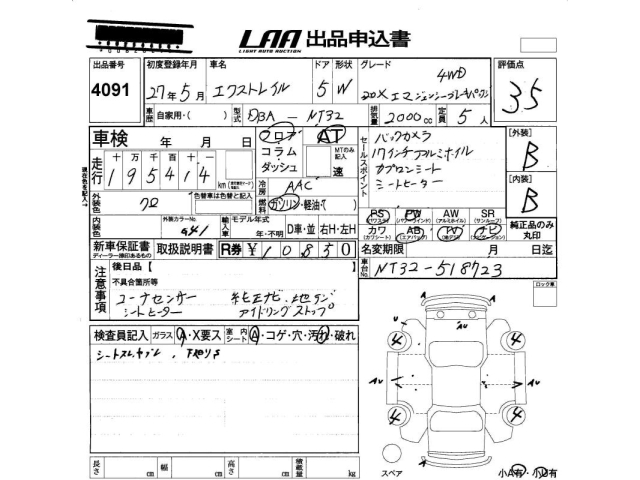 LAA 出品申込書
LIGHT AUTO AUCTION
出品番号
4091
初度登録年月
27年5月
車名
エクストレイル
ドア 形状
5 W
グレード
4WD
20X エマージェンシーブレーキパッケージ
評価点
3.5
車歴 自家用・( )
型式 DBA - NT32
排気量 2000 cc
定員 5 人
車検 年 月 日
フロア AT
コラム
ダッシュ
MTのみ記入
速
セールスポイント
バックカメラ
17インチアルミホイル
カプロンシート
シートヒーター
[外装]
B
[内装]
B
走行
十 万 千 百 十
195414 km
冷房 AAC
燃料 ガソリン・軽油・( )
外装色 クロ
色替車は色替と記入
内装色
外装カラーNo.
G41
輸入車
モデル年式
年・不明
D車・並 右H・左H
PS PW AW SR
(パワステ) (パワーウィンド) (アルミホイル) (サンルーフ)
カワ AB TV ナビ
(カワシート) (エアバック) (ナビゲーション)
純正品のみ丸印
新車保証書
ディーラー捺印あるもの
取扱説明書
R券 ¥10850
名変期限 月 日迄
車台No. NT32-518723
注意事項
後日品【 】
不具合箇所等
コーナーセンサー 純正ナビ、地デジ
シートヒーター アイドリングストップ
ロック車
検査員記入 ガラス A・X要ス 室内シート A・コゲ・穴・汚れ・破れ
シートスレ
A U
4 4
A U A U
4 4
スペア
小A有・小U有
長さ cm 幅 cm 高さ cm 積載量 kg
現在色を記入→